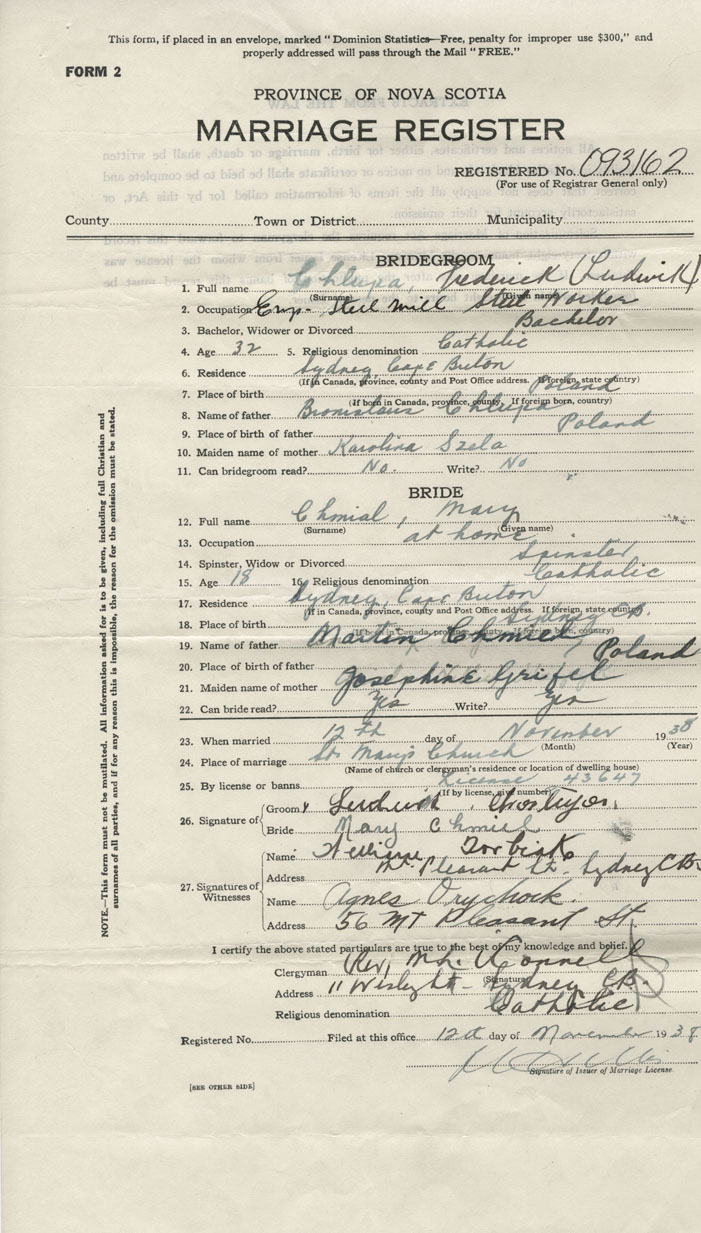 This form, if placed in an envelope, marked "Dominion Statistics—Free, penalty for improper use $300," and
properly addressed will pass through the Mail "FREE."
FORM 2
PROVINCE OF NOVA SCOTIA
MARRIAGE REGISTER
REGISTERED No. 093162
(For use of Registrar General only)
County Town or District Municipality
BRIDEGROOM
1. Full name Chlupa, Frederick (Ludwik)
(Surname) (Given name)
2. Occupation Emp. Steel Mill Steel Worker
3. Bachelor, Widower or Divorced Bachelor
4. Age 32 5. Religious denomination Catholic
6. Residence Sydney Cape Breton
(If in Canada, province, county and Post Office address. If foreign, state county)
7. Place of birth Poland
(If born in Canada, province, county. If foreign born, country)
8. Name of father Bronislaus Chlupa
9. Place of birth of father Poland
10. Maiden name of mother Karolina Szela
11. Can bridegroom read? No. Write? No
BRIDE
12. Full name Chmial, Mary
(Surname) (Given name)
13. Occupation at home
14. Spinster, Widow or Divorced Spinster
15. Age 18 16. Religious denomination Catholic
17. Residence Sydney, Cape Breton
(If in Canada, province, county and Post Office address. If foreign, state county)
18. Place of birth Sydney C.B.
(If born in Canada, province, county. If foreign born, country)
19. Name of father Martin Chmiel
20. Place of birth of father Poland
21. Maiden name of mother Josephine Grifel
22. Can bride read? Yes Write? Yes
23. When married 12th day of November 1938
(Month) (Year)
24. Place of marriage St. Mary's Church
(Name of church or clergyman's residence or location of dwelling house)
25. By license or banns License 43647
(If by license, give number)
26. Signature of
Groom Ludwik
Bride Mary Chmial
27. Signatures of Witnesses
Name William
Address Mt. Pleasant St. Sydney C.B.
Name Agnes
Address 56 Mt Pleasant St.
I certify the above stated particulars are true to the best of my knowledge and belief.
Clergyman Rev.
(Signature)
Address Sydney C.B.
Religious denomination Catholic
Registered No. Filed at this office 12th day of November 1938
Signature of Issuer of Marriage License.
[SEE OTHER SIDE]
NOTE.—This form must not be mutilated. All information asked for is to be given, including full Christian and
surnames of all parties, and if for any reason this is impossible, the reason for the omission must be stated.